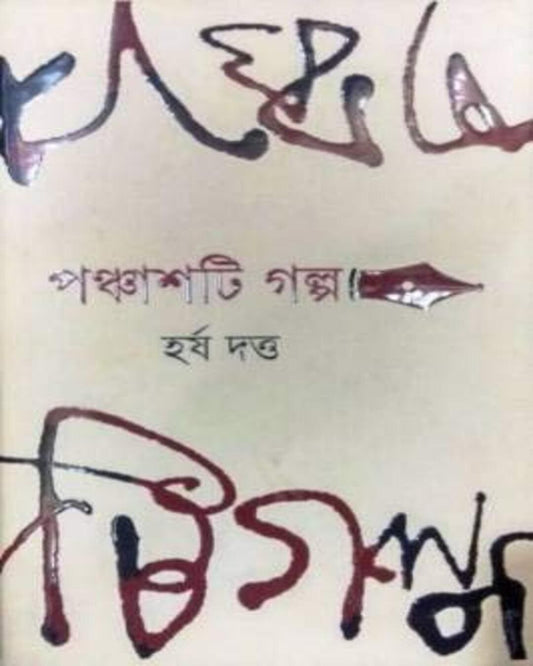 পঞ্চাশটি গল্প
হর্ষ দত্ত
টিগল্প